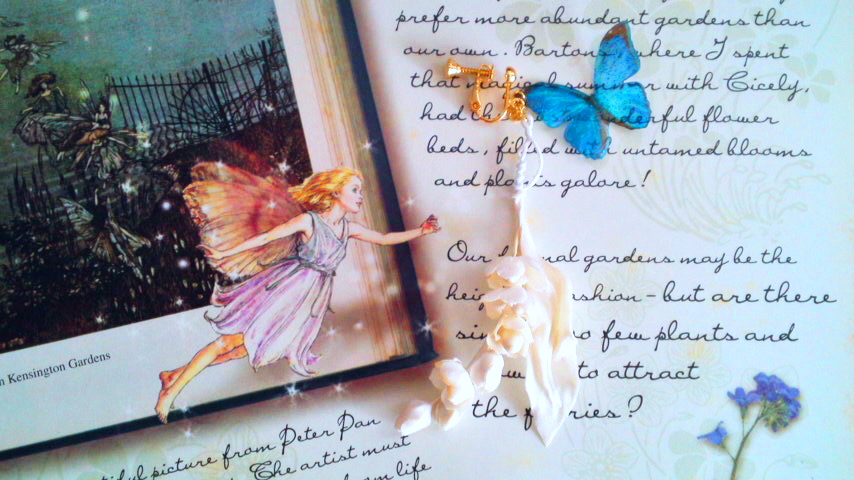 prefer more abundant gardens than
our own. Bartons, where I spent
that magical summer with Cicely,
had wonderful flower
beds, filled with untamed blooms
and plants galore!
Our gardens may be the
fashion - but are there
few plants and
to attract
the fairies?
Kensington Gardens
picture from Peter Pan
The artist must
life